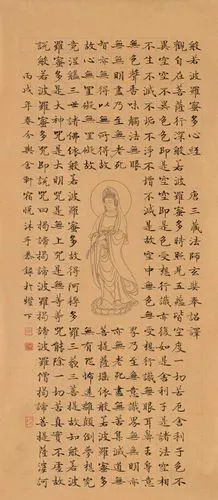 般若波羅蜜多心經 唐三藏法師玄奘奉詔譯
觀自在菩薩行深般若波羅蜜多時照見五蘊皆空度一切苦厄舍利子色不
異空空不異色色即是空空即是色受想行識亦復如是舍利子是諸法空相
不生不滅不垢不淨不增不減是故空中無色無受想行識無眼耳鼻舌身意無
色聲香味觸法無眼界乃至無意識界無無明亦
無無明盡乃至無老死亦無老死盡無苦集滅道無
智亦無得以無所得故菩提薩埵依般若波羅蜜多
故心無罣礙無罣礙故無有恐怖遠離顛倒夢想究
竟涅槃三世諸佛依般若波羅蜜多故得阿耨多羅三藐三菩提故知般若波
羅蜜多是大神咒是大明咒是無上咒是無等等咒能除一切苦真實不虛故
說般若波羅蜜多咒即說咒曰揭諦揭諦波羅揭諦波羅僧揭諦菩提薩婆訶
丙戌年春 沐手恭錄於燈下